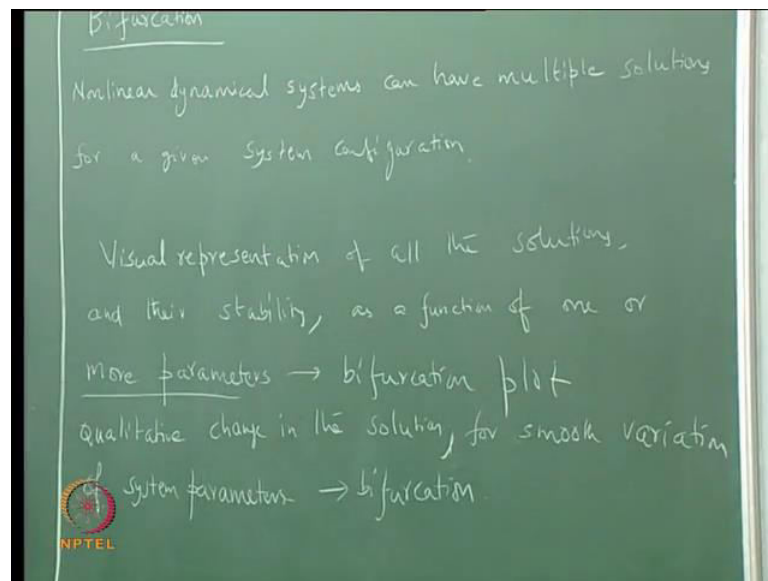 Bifurcation
Nonlinear dynamical systems can have multiple solutions
for a given system configuration.
Visual representation of all the solutions,
and their stability, as a function of one or
more parameters → bifurcation plot
Qualitative change in the solution, for smooth variation
of system parameters → bifurcation.
NPTEL